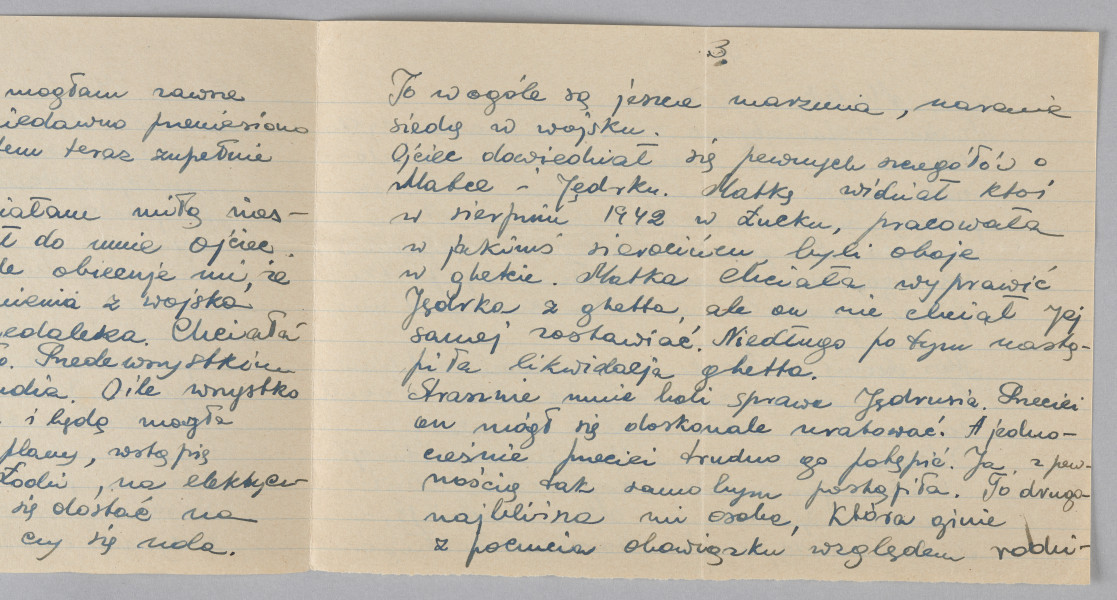 mogłam zawsze
niedawno przeniesiono
tem teraz zupełnie
miałam miłą nies-
ł do mnie ojciec.
le obiecuje mi, że
nienia z wojska
niedaleka. Chciałaś
o. Przedewszystkim
udia. O ile wszystko
i będę mogła
plany, wstąpię
Łodzi, na elektrycz-
się dostać na
czy się uda.
3.
To w ogóle są jeszcze marzenia, narazie
siedzę w wojsku.
Ojciec dowiedział się pewnych szczegółów o
Matce i Jędrku. Matkę widział ktoś
w sierpniu 1942 w Łucku, pracowała
w jakimś sierocińcu byli oboje
w ghetcie. Matka chciała wyprawić
Jędrka z ghetta, ale on nie chciał Jej
samej zostawiać. Niedługo po tym nastą-
piła likwidacja ghetta.
Strasznie mnie boli sprawa Jędrusia. Przecież
on mógł się doskonale uratować. A jedno-
cześnie przecież trudno go potępić. Ja z pew-
nością tak samo bym postąpiła. To druga
najbliższa mi osoba, która ginie
z poczucia obowiązku względem rodzi-